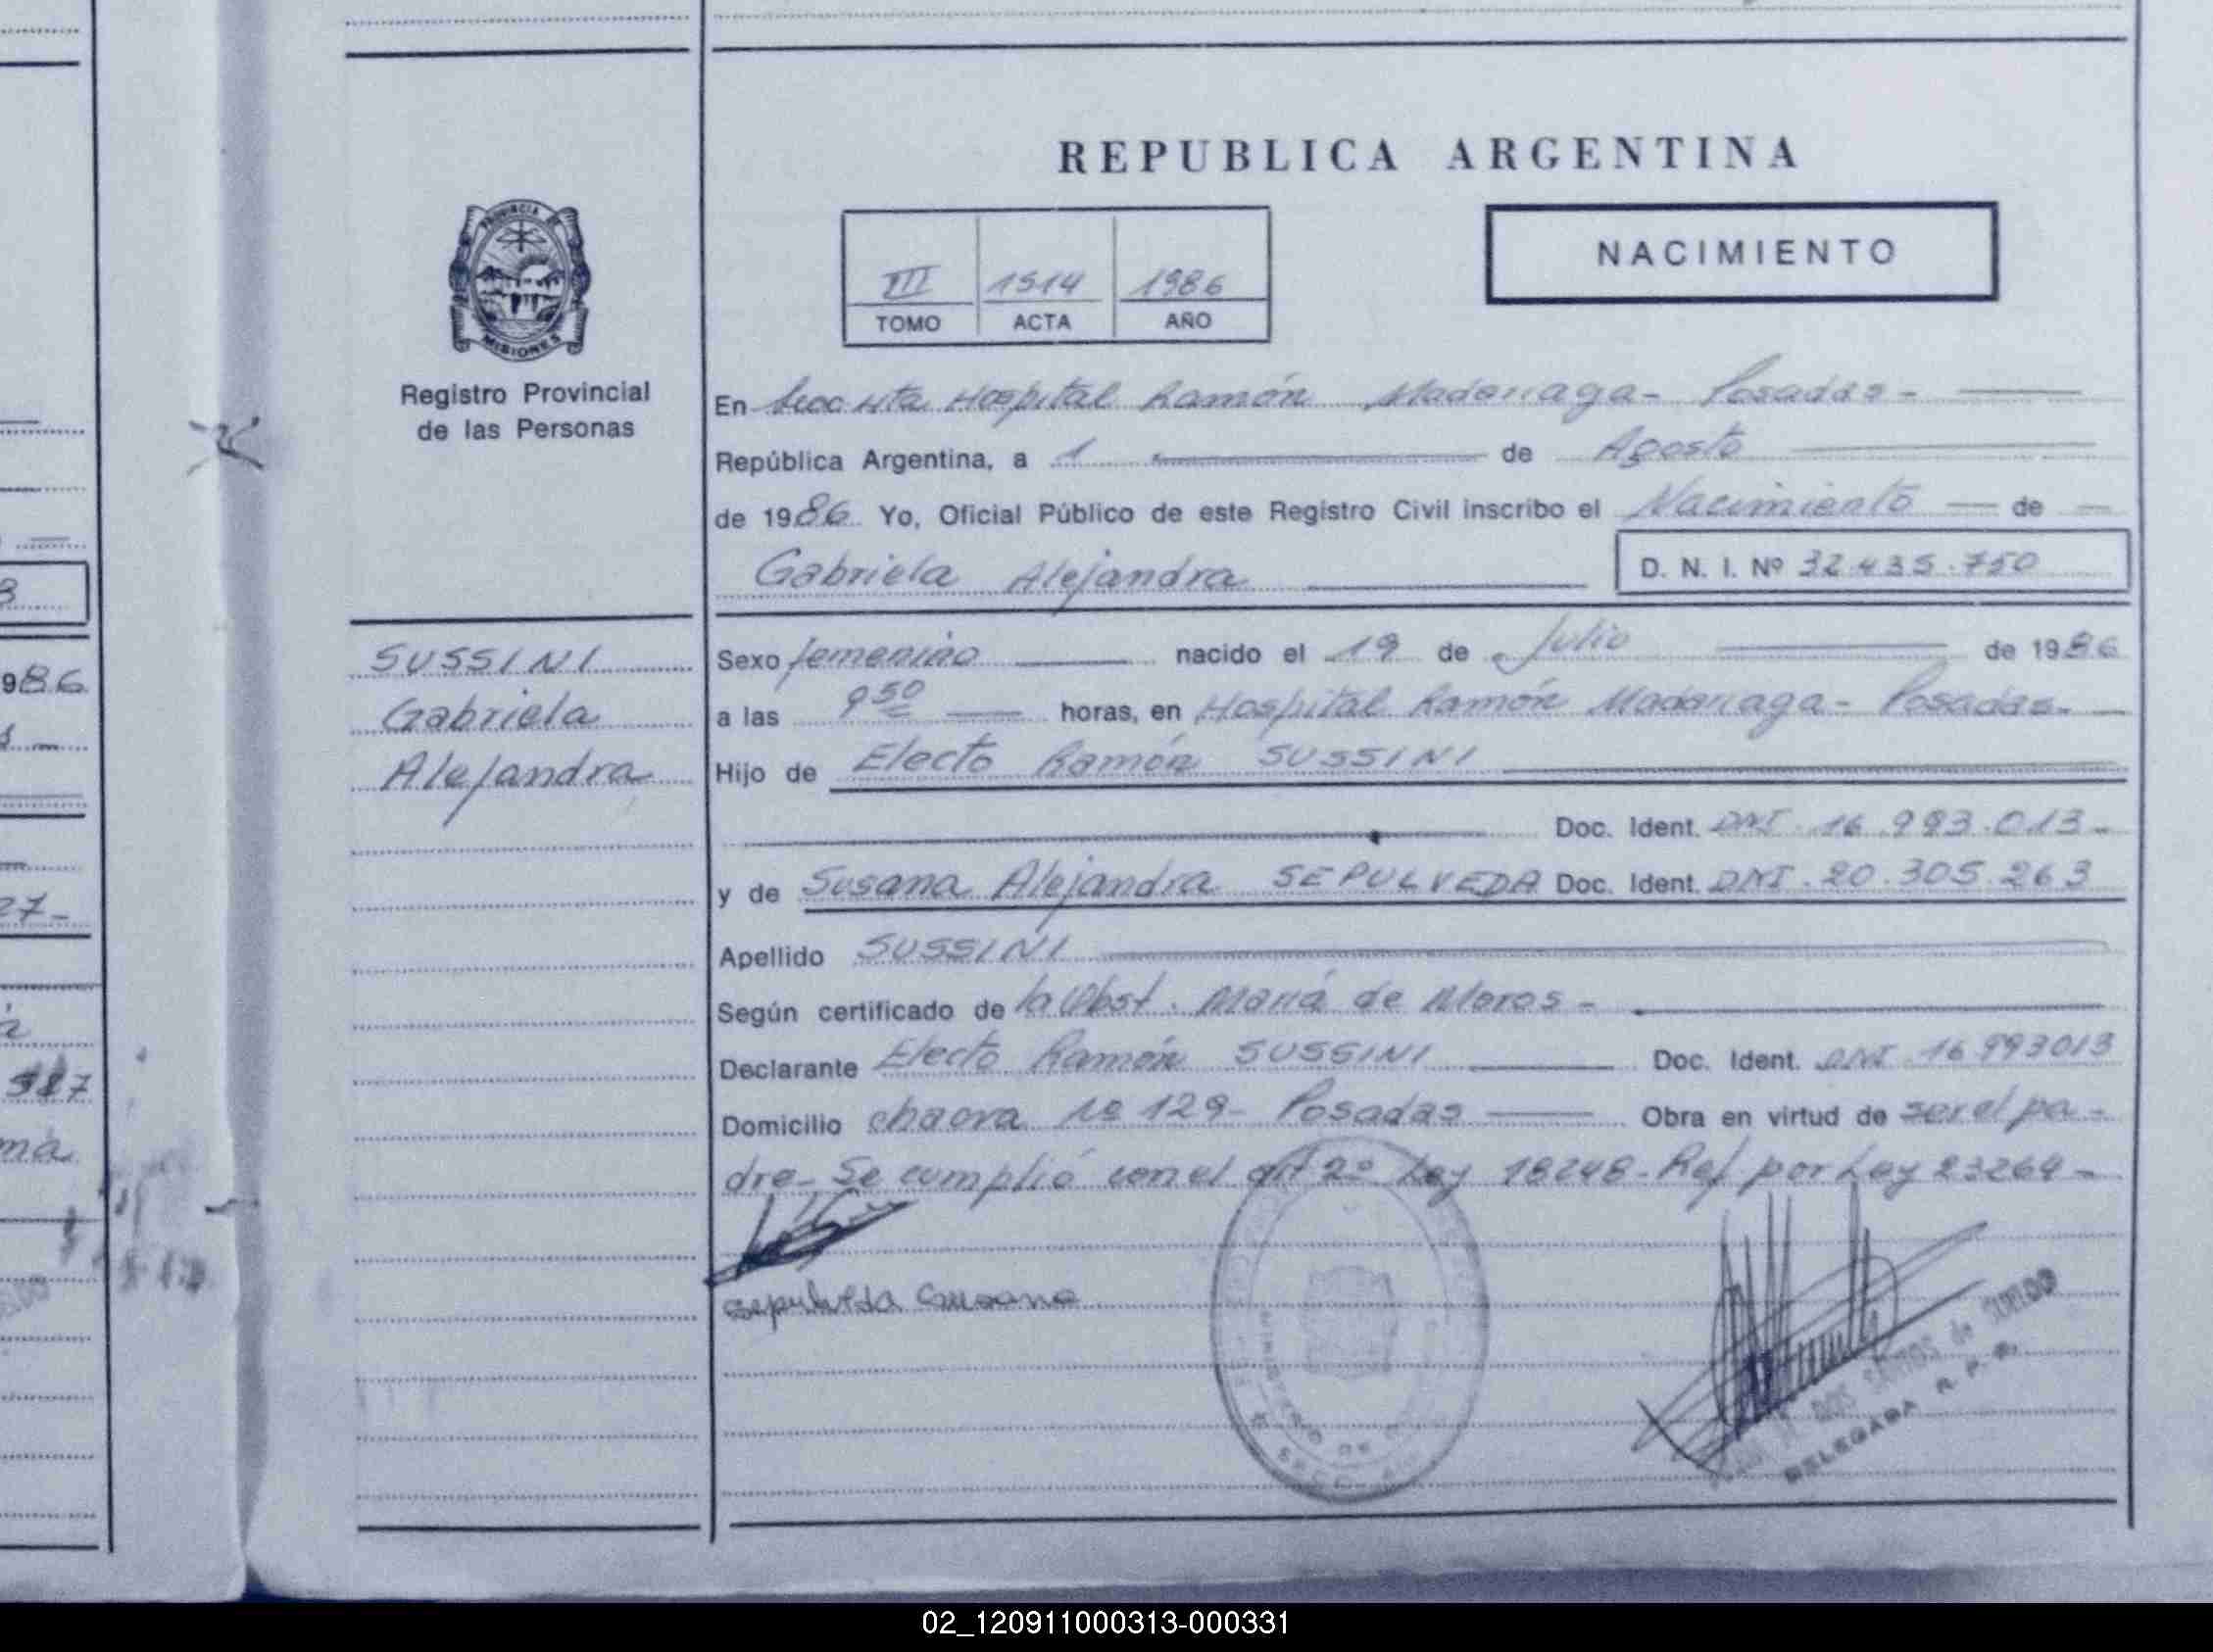 REPUBLICA ARGENTINA
NACIMIENTO
III 1514 1986
TOMO ACTA AÑO
PROVINCIA DE
MISIONES
Registro Provincial
de las Personas
En Secc. Hospital Ramón Madariaga - Posadas -
República Argentina, a 1 de Agosto
de 1986 Yo, Oficial Público de este Registro Civil inscribo el Nacimiento de
Gabriela Alejandra D. N. I. Nº 32.435.750
SUSSINI
Gabriela
Alejandra
Sexo femenino nacido el 19 de Julio de 1986
a las 9 50 horas, en Hospital Ramón Madariaga - Posadas -
Hijo de Electo Ramón SUSSINI
Doc. Ident. DNI. 16.993.013 -
y de Susana Alejandra SEPULVEDA Doc. Ident. DNI. 20.305.263
Apellido SUSSINI
Según certificado de la Obst. María de Moros -
Declarante Electo Ramón SUSSINI Doc. Ident. DNI 16993013
Domicilio chacra Nº 129 - Posadas Obra en virtud de ser el pa-
dre - Se cumplió con el art 2º Ley 18248 - Ref por Ley 23264 -
Sepulveda Susana
MINISTERIO DE
DOS SANTOS de SUELDO
DELEGADA R. P. P.
986
27-
02_120911000313-000331